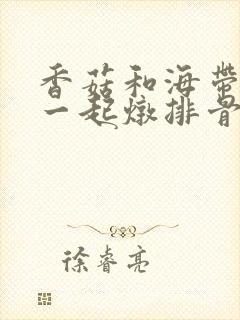 香菇和海带
一起炖排骨
徐睿亮